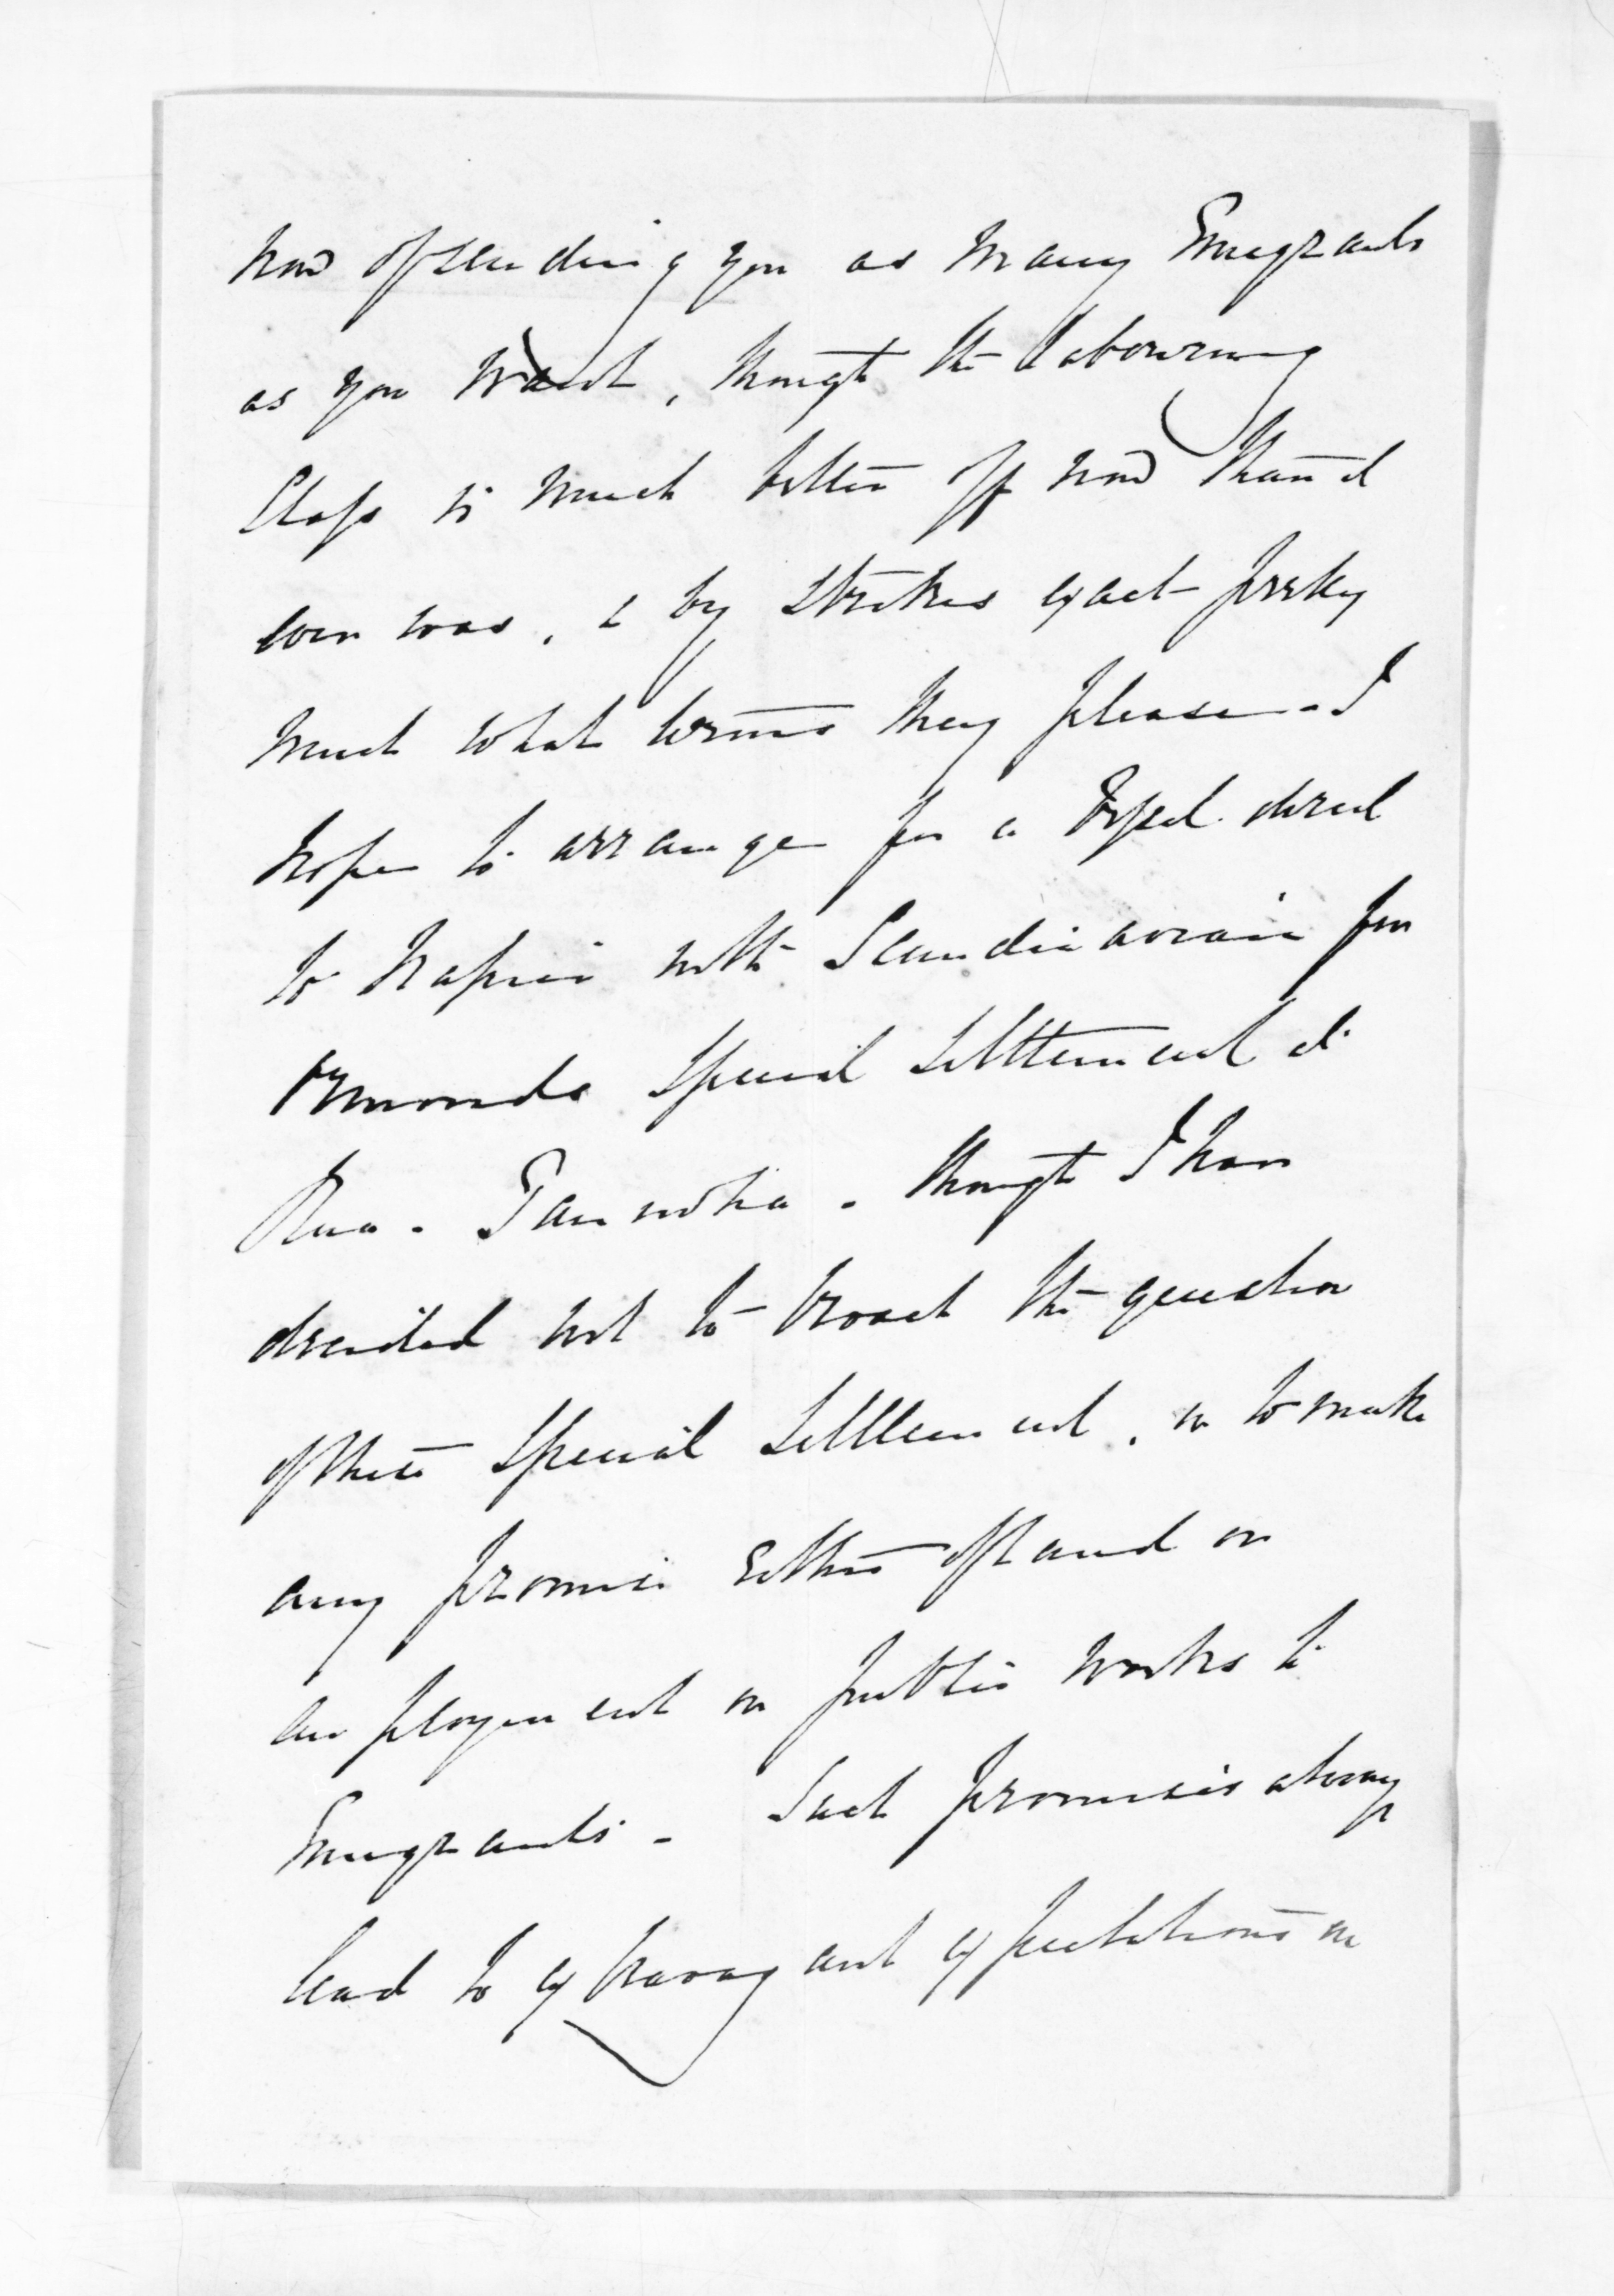 now of sending you as many Emigrants
as you want, though the labouring
Class is much better off now than it
ever was, & by strikes exact pretty
much what terms they please - I
hope to arrange for a vessel direct
to Napier with Scandinavians for
Ormonds Special Settlement at
Rua - Taniwha - though I have
decided not to broach the question
of these Special Settlement, or to make
any promise either of land or
employment on public works to
Emigrants - Such promises always
lead to extravagant expectations in